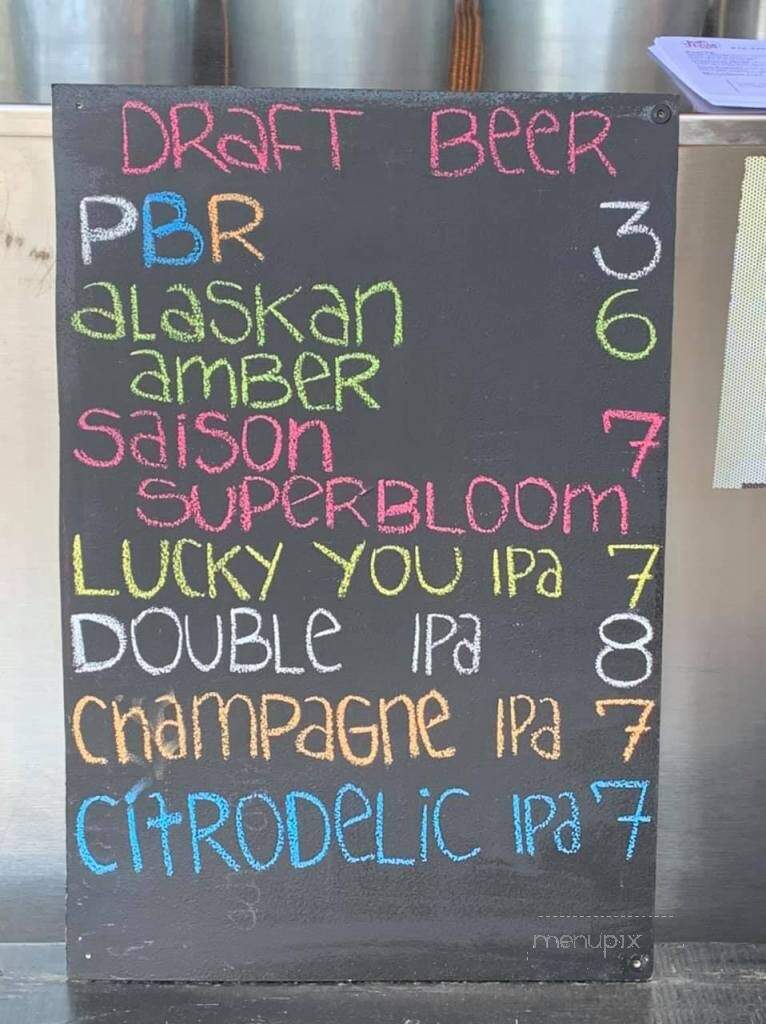 DRaFT Beer
PBR 3
aLaskan 6
amBeR
saison 7
SUPeRBLOOm
LUCKY YOU IPa 7
DOUBLe IPa 8
CHamPaGne IPa 7
CiTRODeLiC IPa 7
menupix